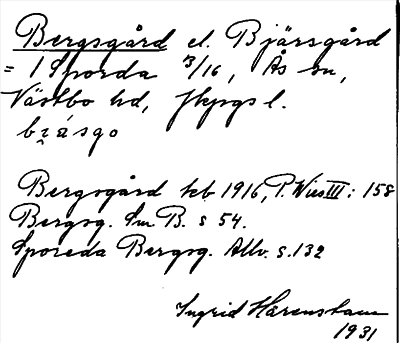 Bergsgård el. Bjärsgård
= 1 Sporda 3/16, Ås sn,
Västbo hd, Jkpgs l.
bjásgo
Bergsgård keb 1916, P. Wies III: 158
Bergsg. Sm B. s 54.
Sporeda Bergsg. Allv. s. 132
Ingrid Harenstam
1931